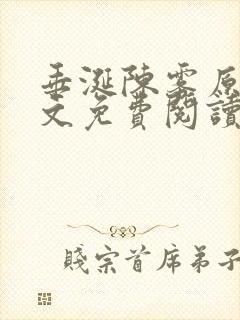 垂涎陳雾原
文免費閱讀
賤宗首席弟子